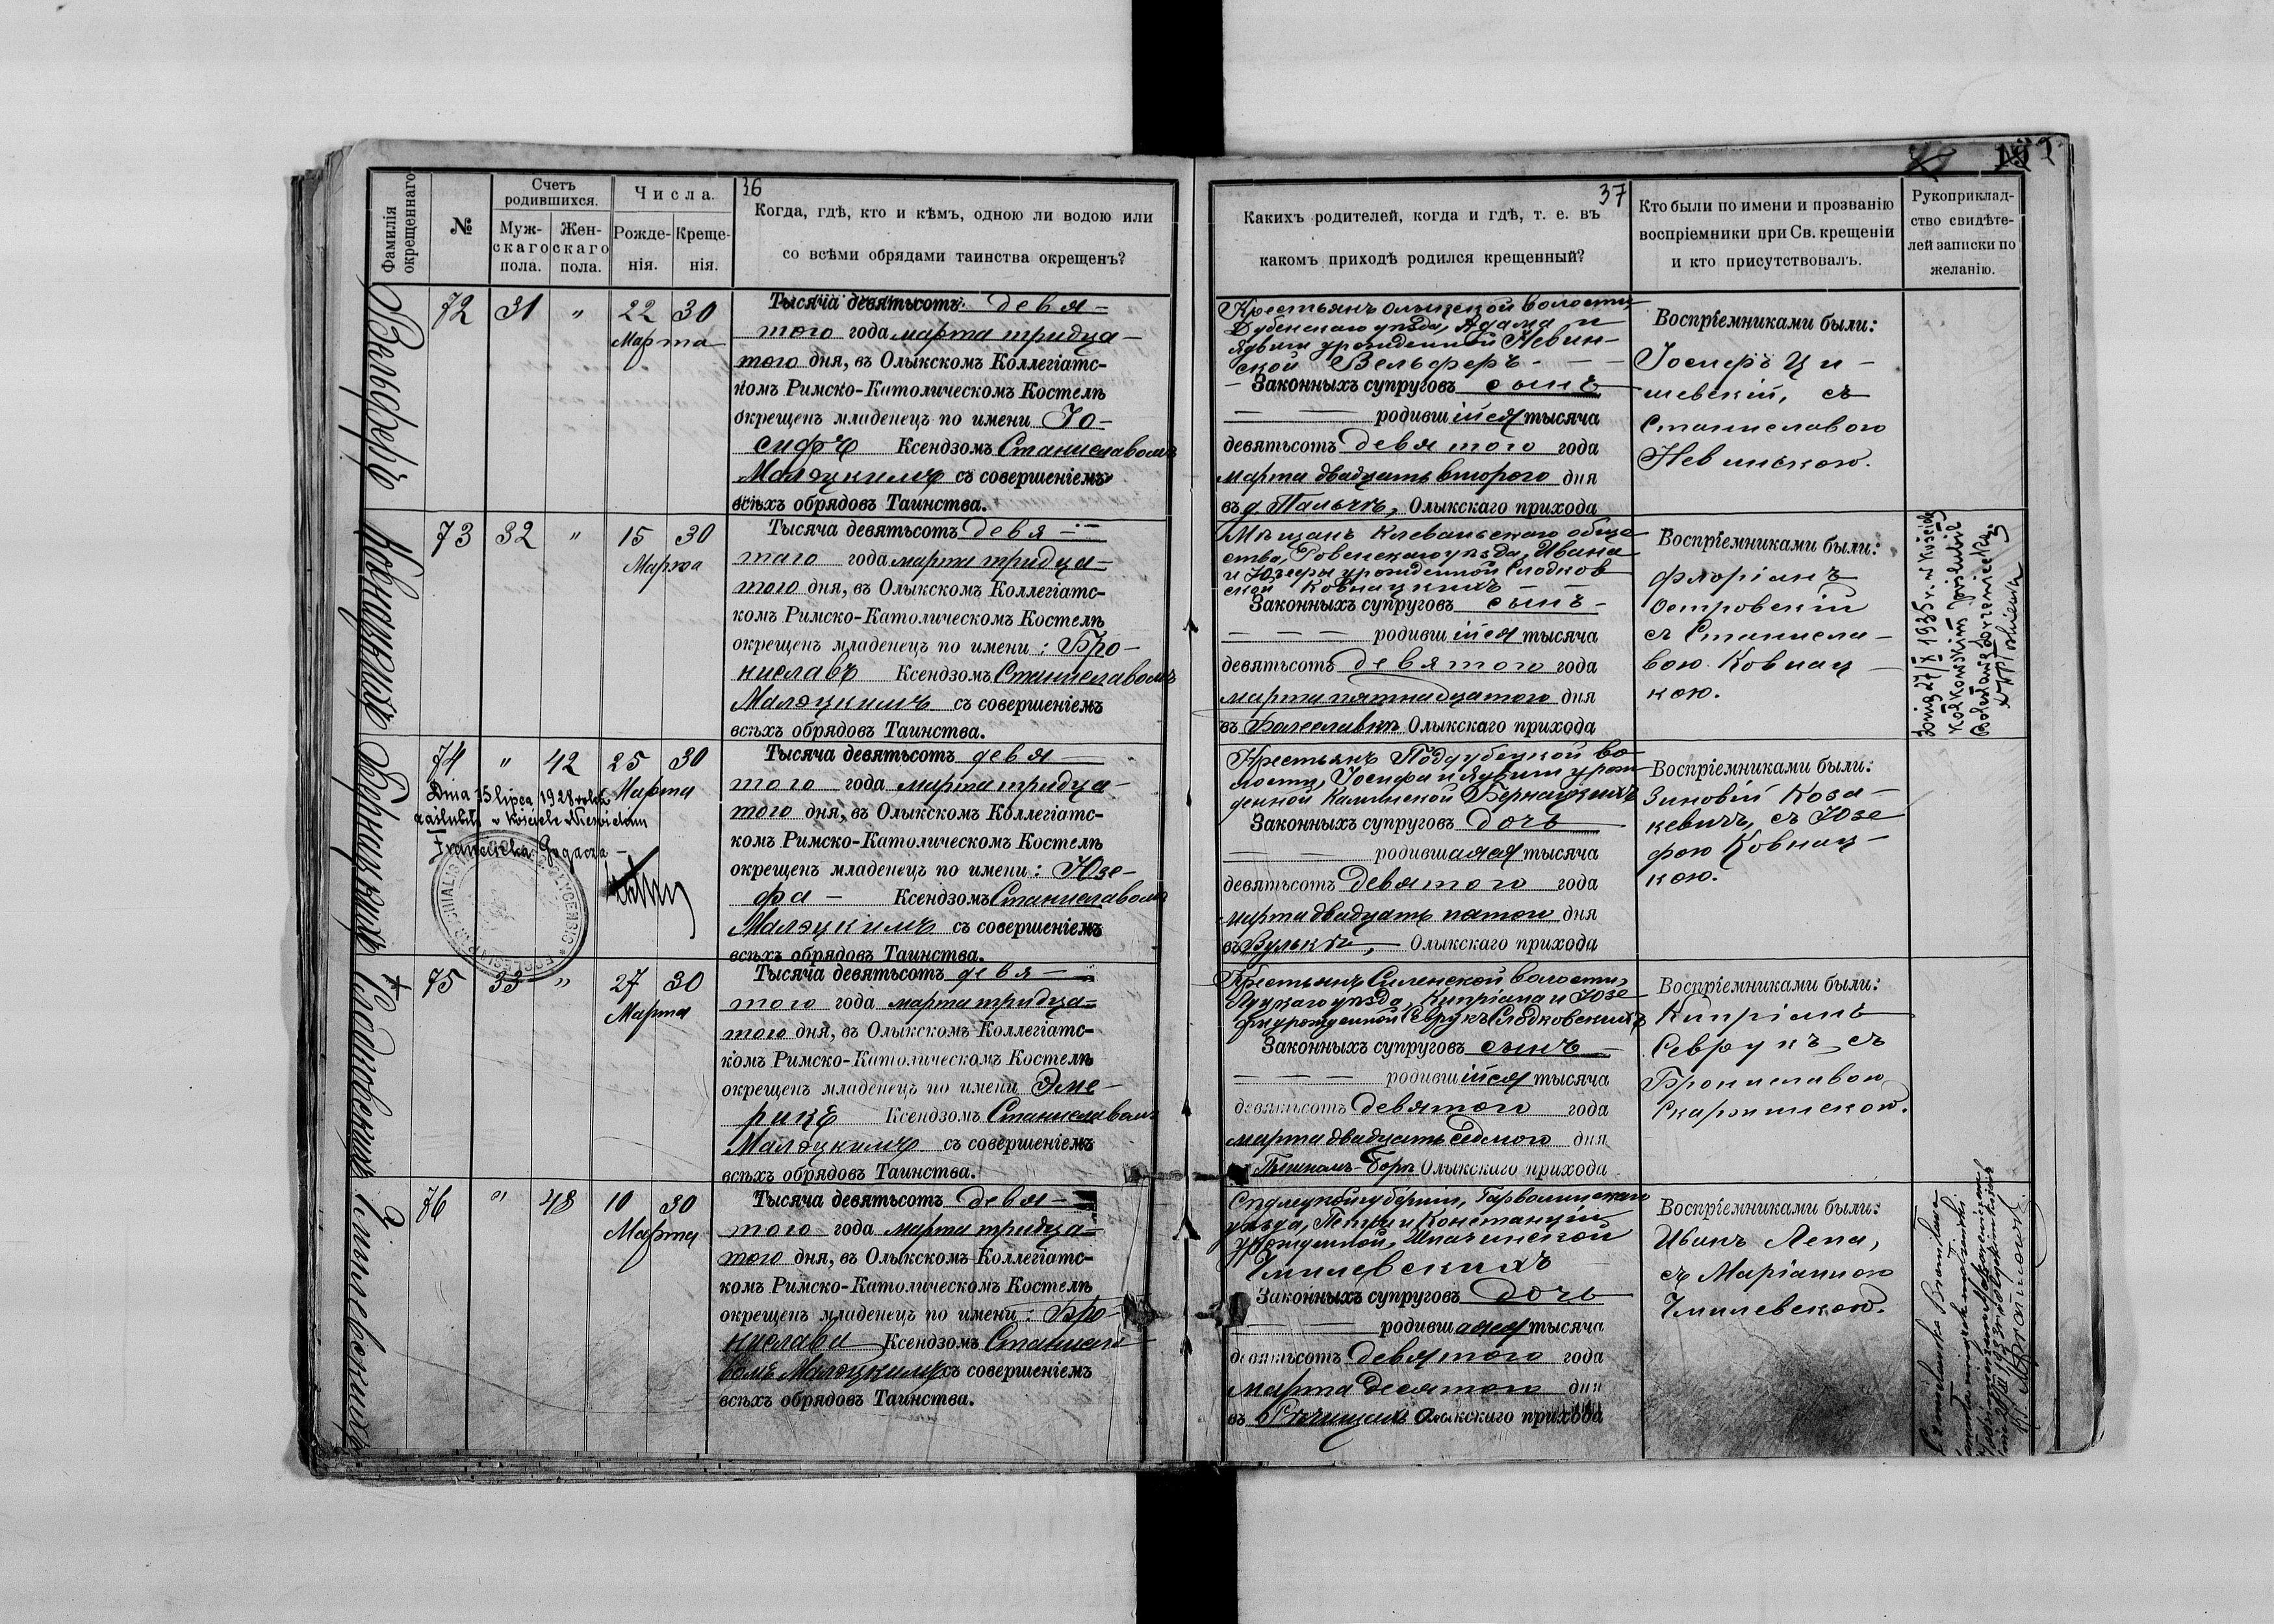 36
Фамилія окрещеннаго
№
Счетъ родившихся.
Муж-
скаго
пола.
Жен-
скаго
пола.
Числа.
Рожде-
нія.
Креще-
нія.
Когда, гдѣ, кто и кѣмъ, одною ли водою или
со всѣми обрядами таинства окрещенъ?
Вельферъ
72
31
"
22
30
Марта
Тысяча девятьсотъ девя-
того года марта тридца-
того дня, въ Олыкскомъ Коллегіатс-
комъ Римско-Католическомъ Костелѣ
окрещенъ младенецъ по имени Іо-
сифъ Ксендзомъ Станиславомъ
Малэцкимъ съ совершеніемъ
всѣхъ обрядовъ Таинства.
Ковнацкихъ
73
32
"
15
30
Марта
Тысяча девятьсотъ девя-
таго года марта тридца-
того дня, въ Олыкскомъ Коллегіатс-
комъ Римско-Католическомъ Костелѣ
окрещенъ младенецъ по имени: Бро-
ниславъ Ксендзомъ Станиславомъ
Малэцкимъ съ совершеніемъ
всѣхъ обрядовъ Таинства.
Бернацкихъ
74
"
42
25
30
Марта
Dnia 15 lipca 1928 roku
zaślubiła w kościele Nieświeżem
Franciszka Gogacza
Тысяча девятьсотъ девя-
того года марта тридца-
того дня, въ Олыкскомъ Коллегіатс-
комъ Римско-Католическомъ Костелѣ
окрещенъ младенецъ по имени: Юзе-
фа - Ксендзомъ Станиславомъ
Малэцкимъ съ совершеніемъ
всѣхъ обрядовъ Таинства.
Слодковскихъ
75
33
"
27
30
Марта
Тысяча девятьсотъ девя-
того года марта тридца-
того дня, въ Олыкскомъ Коллегіатс-
комъ Римско-Католическомъ Костелѣ
окрещенъ младенецъ по имени Эме-
рикъ Ксендзомъ Станиславомъ
Малэцкимъ съ совершеніемъ
всѣхъ обрядовъ Таинства.
Чмилевскихъ
76
"
48
10
30
Марта
Тысяча девятьсотъ девя-
того года марта тридца-
того дня, въ Олыкскомъ Коллегіатс-
комъ Римско-Католическомъ Костелѣ
окрещенъ младенецъ по имени: Бро-
нислава Ксендзомъ Станисла-
вомъ Малэцкимъ съ совершеніемъ
всѣхъ обрядовъ Таинства.
37
Какихъ родителей, когда и гдѣ, т. е. въ
какомъ приходѣ родился крещенный?
Кто были по имени и прозванію
воспріемники при Св. крещеніи
и кто присутствовалъ.
Рукоприклад-
ство свидѣте-
лей записки по
желанію.
Крестьянъ Олыкской волости
Дубенскаго уѣзда, Адама и
Ядвиги урожденной Невин-
ской Вельферъ - - -
Законныхъ супруговъ сынъ
родившійся тысяча
девятьсотъ девятого года
марта двадцать второго дня
въ д. Пальчѣ, Олыкскаго прихода
Воспріемниками были:
Іосифъ Ци-
шевскій, съ
Станиславою
Невинскою.
Мѣщанъ Клеваньскаго обще
ства, Ровенскаго уѣзда, Ивана
и Юзефы урожденной Слодков
ской Ковнацкихъ
Законныхъ супруговъ сынъ -
родившійся тысяча
девятьсотъ девятого года
марта пятнадцатого дня
въ Болеславкѣ Олыкскаго прихода
Воспріемниками были:
Флоріанъ
Островскій
съ Станисла-
вою Ковнац-
кою.
Dnia 27/X 1935 r. w kościele
Kołkowskim poślubił
Крестьянъ Поддубецкой во-
лости, Іосифа и Ядвиги урож
денной Калинской Бернацкихъ
Законныхъ супруговъ дочь
родившаяся тысяча
девятьсотъ девятого года
марта двадцать пятого дня
въ Вулькѣ, Олыкскаго прихода
Воспріемниками были:
Зиновій Коза-
кевичъ, съ Юзе
фою Ковнац-
кою.
Крестьянъ Силенской волости,
Луцкаго уѣзда, Кипріана и Юзе
фы урожденной Севрукъ Слодковскихъ
Законныхъ супруговъ сынъ
родившійся тысяча
девятьсотъ девятого года
марта двадцать седмого дня
Борѣ Олыкскаго прихода
Воспріемниками были:
Кипріанъ
Севрукъ, съ
Брониславою
Скаржинскою.
Сѣдлецкой губерніи, Гарволинскаго
уѣзда, Петра и Констанціи
урожденной
Чмилевскихъ
Законныхъ супруговъ дочь
родившаяся тысяча
девятьсотъ девятого года
марта десятого дня
въ Олыкскаго прихода
Воспріемниками были:
Иванъ Лепа,
съ Маріанною
Чмилевскою.
Czmilewska Bronisława
zawarła związek małżeński